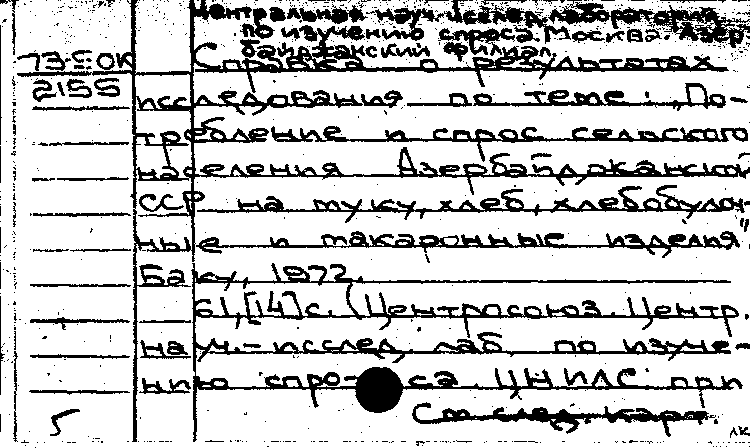 Центральная науч.-исслед. лаборатория
по изучению спроса. Москва. Азер-
байджанский филиал.
73-5 ОК
Справка о результатах
2155
исследования по теме: „По-
требление и спрос сельского
населения Азербайджанской
ССР на муку, хлеб, хлебобулоч-
ные и макаронные изделия"
Баку, 1972.
61,[14]с. (Центросоюз. Центр.
науч.-исслед. лаб. по изуче-
нию спроса. ЦНИЛС при
См. след. карт.
5
лк